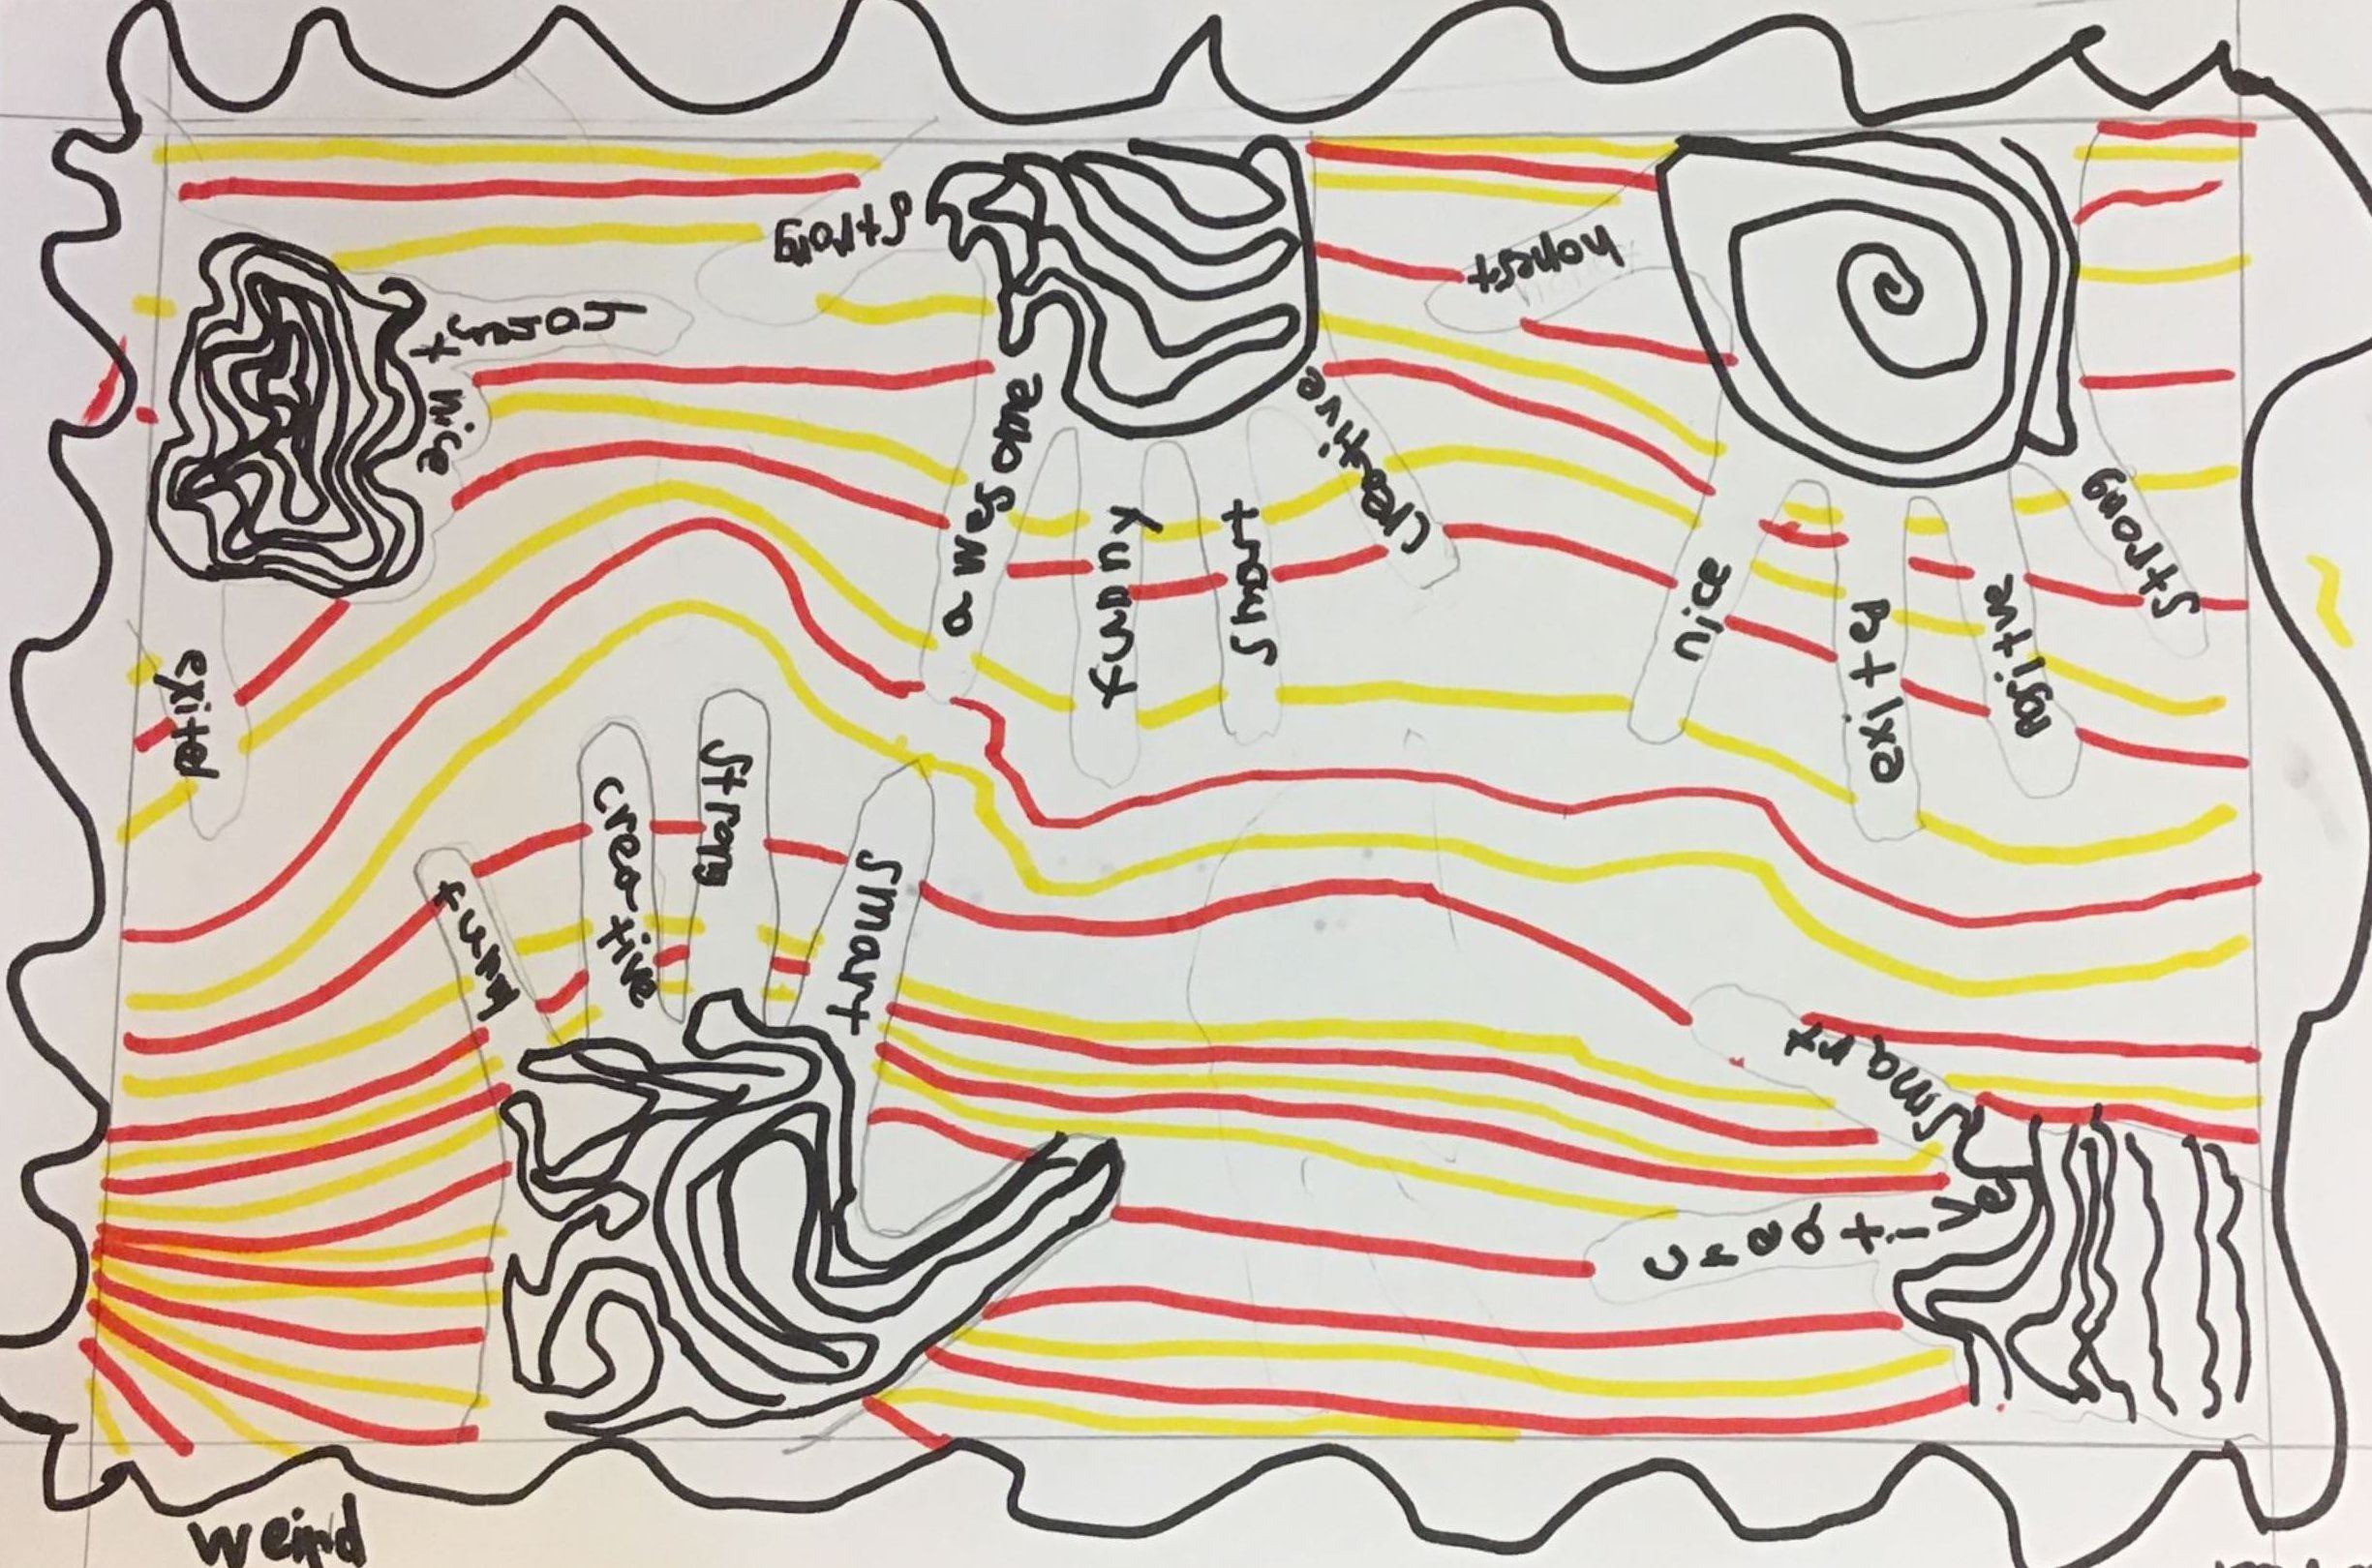 Strong
honest
honest
nice
awesome
funny
Smart
creative
nice
exited
agitive
Strong
exited
funny
creative
Strong
Smart
Smart
Creative
weird